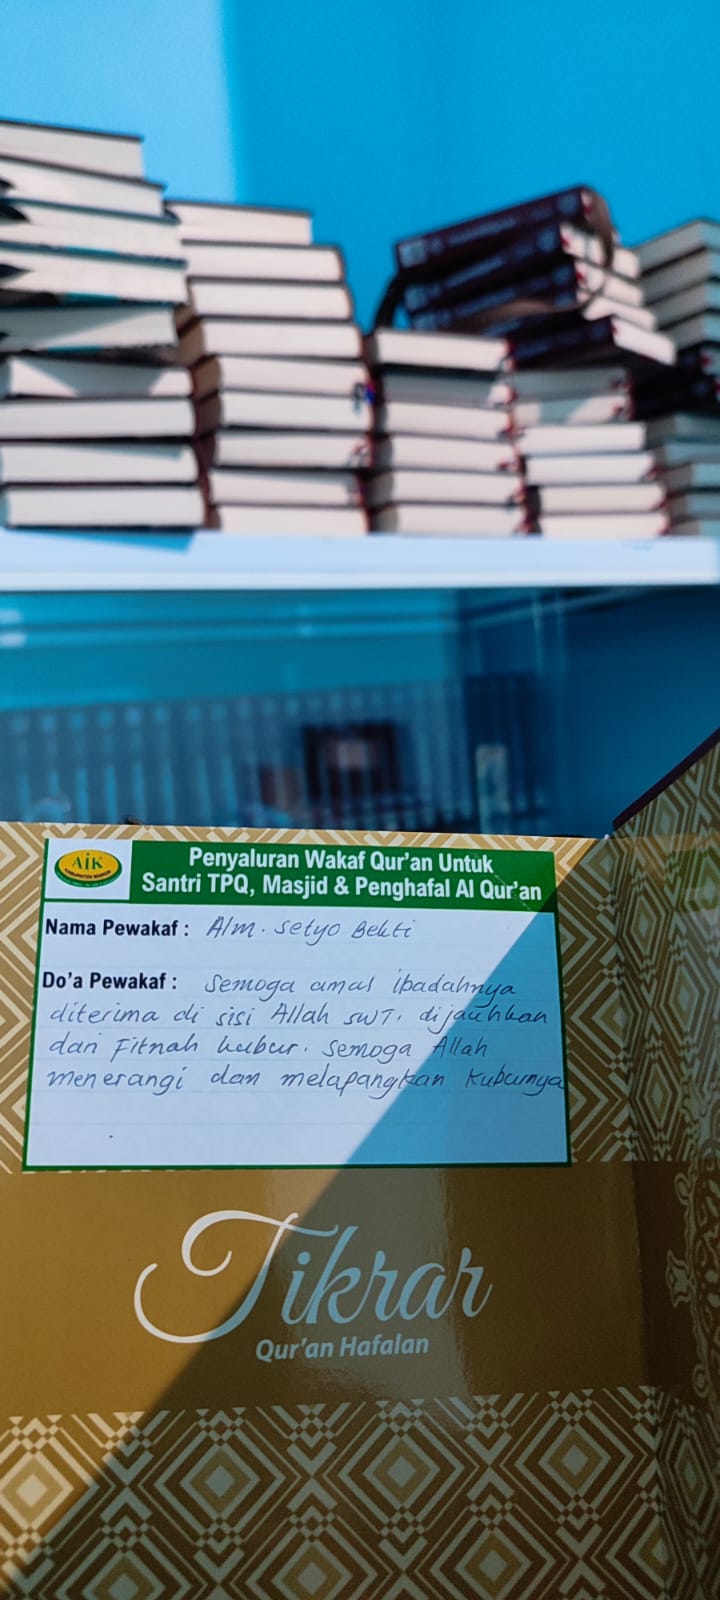 AIK
Penyaluran Wakaf Qur'an Untuk
Santri TPQ, Masjid & Penghafal Al Qur'an
Nama Pewakaf : Alm. Setyo Bekti
Do'a Pewakaf : Semoga amal ibadahnya
diterima di sisi Allah SWT. dijauhkan
dari Fitnah kubur. Semoga Allah
menerangi dan melapangkan Kuburnya
Tikrar
Qur'an Hafalan